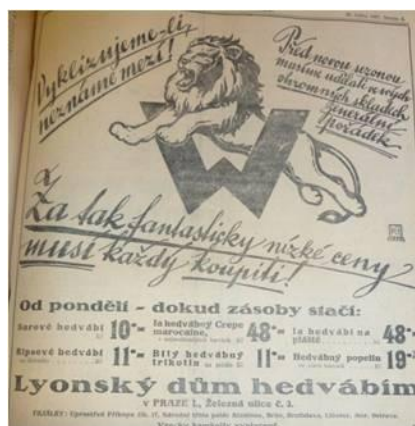 Vyklizujeme-li,
neznáme mezí!
Před novou sezonou
musíme udělati ve svých
ohromných skladech
generální
pořádek
W
Za tak fantasticky nízké ceny
musí každý koupiti!
Od pondělí – dokud zásoby stačí:
Surové hedvábí 10
Ia hedvábný Crepe marocaine, 48
Ia hedvábí na pláště 48
Ripsové hedvábí 11
Bílý hedvábný trikotin 11
Hedvábný popelin 19
Lyonský dům hedvábím
v PRAZE I., Železná ulice č. 3.